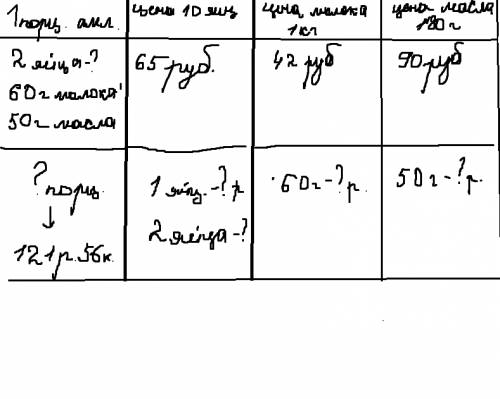 1 порц. омл.
цена 10 яиц
цена молока
1 кг
цена масла
180 г
2 яйца-?
60 г молока
50 г масла
65 руб.
42 руб
90 руб
? порц.
↓
121 р. 56 к.
1 яйц. -? р
2 яйца -?
60 г -? р.
50 г -? р.